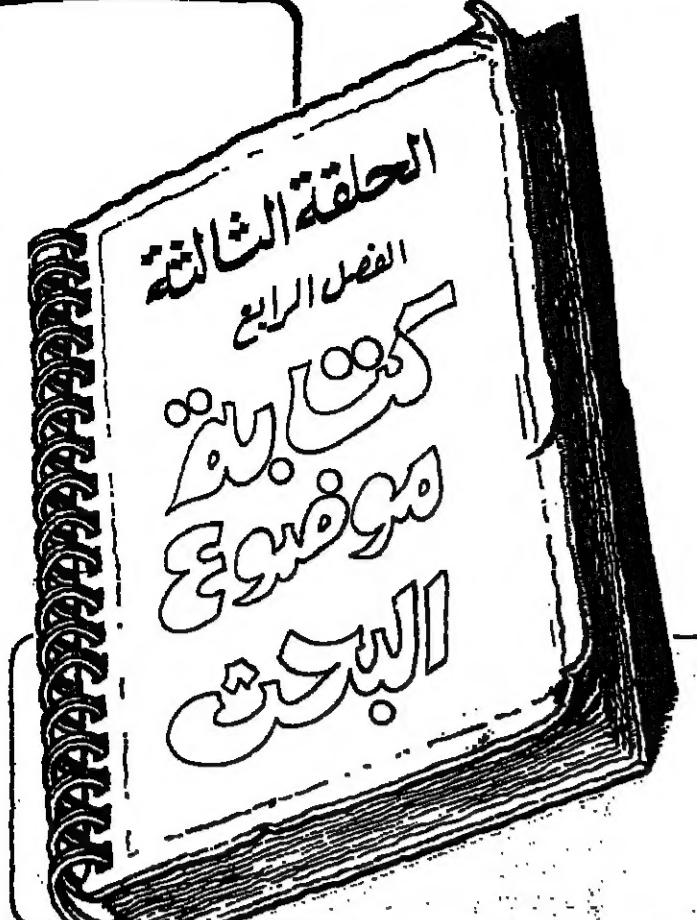 الحلقة الثالثة
الفصل الرابع
كتابة
موضوع
البحث